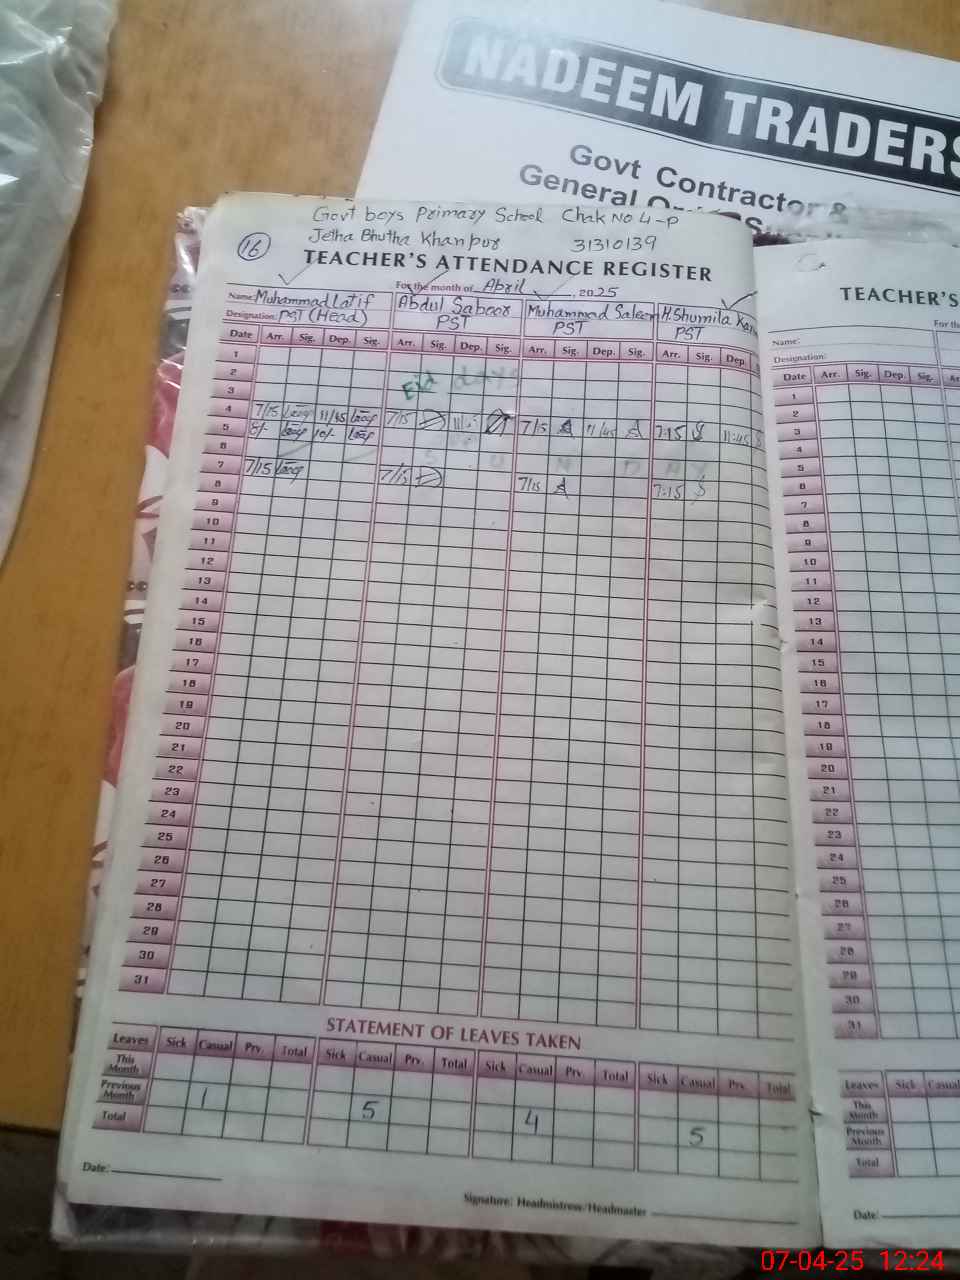 NADEEM TRADERS
Govt Contractor &
General
Govt boys Primary School Chak No 4-P
Jetha Bhutha Khanpur 31310139
16
TEACHER'S ATTENDANCE REGISTER
For the month of Abril, 2025
Name: Muhammad Latif Abdul Saboor Muhammad Saleem H.Shumila
Designation: PST (Head) PST PST PST
Date Arr. Sig. Dep. Sig. Arr. Sig. Dep. Sig. Arr. Sig. Dep. Sig. Arr. Sig. Dep.
1
2 Eid days
3
4 7/15 11/45 7/15 7/15 11/45 7:15 11:45
5 8/- 10/-
6 S U N D A Y
7 7/15 7/15 7/15 7:15
8
9
10
11
12
13
14
15
16
17
18
19
20
21
22
23
24
25
26
27
28
29
30
31
STATEMENT OF LEAVES TAKEN
Leaves Sick Casual Prv. Total Sick Casual Prv. Total Sick Casual Prv. Total Sick Casual Prv. Total
This Month
Previous Month 1 5 4 5
Total
Date:
Signature: Headmistress/Headmaster
TEACHER'S
For th
Name:
Designation:
Date Arr. Sig. Dep. Sig. Arr.
1
2
3
4
5
6
7
8
9
10
11
12
13
14
15
16
17
18
19
20
21
22
23
24
25
26
27
28
29
30
31
Leaves Sick Casual
This Month
Previous Month
Total
Date:
07-04-25 12:24